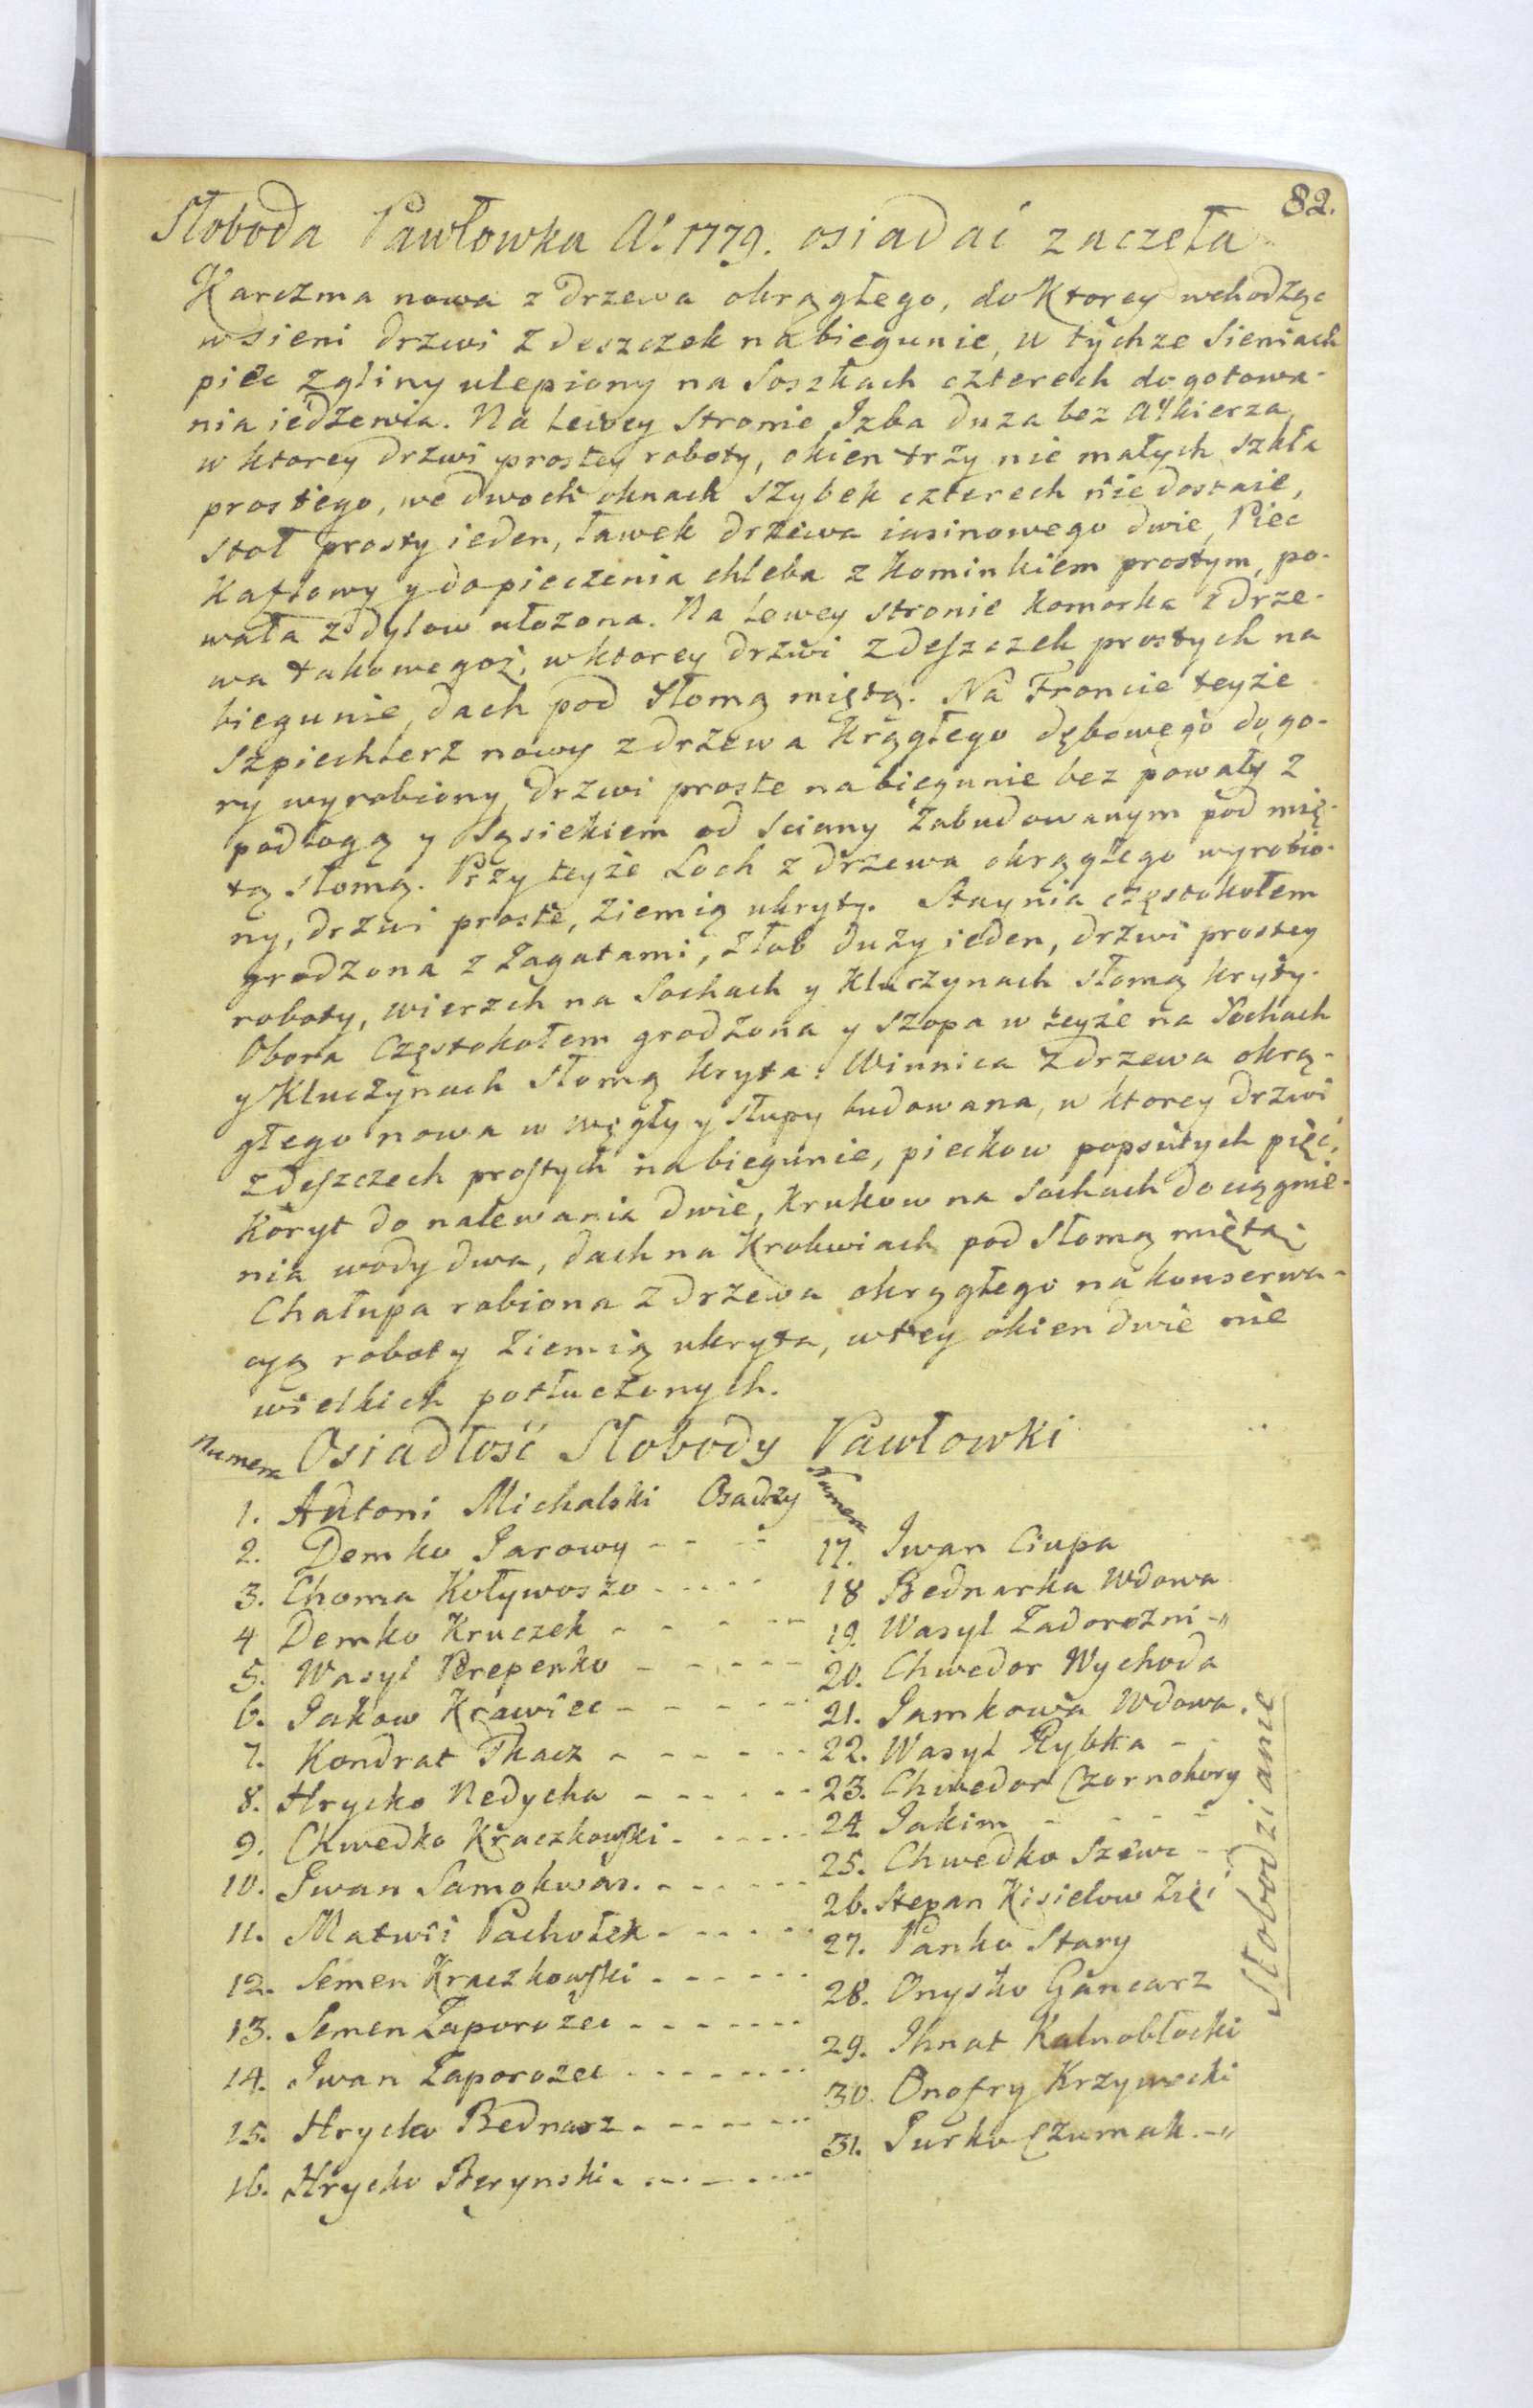 82.
Słoboda Pawłowka Aº 1779. osiadać zaczeła
Karczma nowa z drzewa okrągłego, do Ktorey wchodząc
w sieni drzwi z deszczek na biegunie, w tychze Sieniach
piec z gliny ulepiony na Soszkach czterech do gotowa-
nia iedzenia. Na Lewey Stronie Izba duza bez Alkierza,
w ktorey drzwi prostey roboty, okien trzy nie małych szkła
prostego, we dwoch oknach szybek czterech niedostaie,
stoł prosty ieden, ławek drzewa iasinowego dwie, Piec
Kaflowy y do pieczenia chleba z kominkiem prostym, po-
wała z dylow ułozona. Na Lewey stronie komorka z drze-
wa takowegoż, w ktorey drzwi z deszczek prostych na
biegunie, dach pod Słomą miętą. Na Froncie teyże
Szpiechlerz nowy z drzewa Krągłego dębowego do go-
ry wyrobiony, drzwi proste na biegunie bez powały z
podłogą y Sąsiekiem od Sciany Zabudowanym pod mię-
tą słomą. Przy teyże Loch z drzewa okrągłego wyrobio-
ny, drzwi proste, Ziemią ukryty. Staynia częstokołem
grodzona z Zagatami, Złob duży ieden, drzwi prostey
roboty, wierzch na Sochach y Kluczynach Słomą kryty.
Obora Częstokołem grodzona y Szopa w teyże na Sochach
y Kluczynach Słomą kryta. Winnica z drzewa okrą-
głego nowa w węgły y słupy budowana, w ktorey drzwi
z deszczech prostych na biegunie, pieckow popsutych pięć,
Koryt do nalewania dwie, Krukow na Sochach do ciągnie-
nia wody dwa, dach na Krokwiach pod Słomą miętą.
Chałupa robiona z drzewa okrągłego na konserwa-
cyą roboty Ziemią ukryta, w tey okien dwie nie
wielkich potłuczonych.
Osiadłość Słobody Pawłowki
Numera
Numera
1. Antoni Michalski Osadzy
2. Demko Jarowy - - -
3. Choma Koływoszo - - - -
4 Demko Kruczek - - - - -
5. Wasyl Perepenko - - - - -
6. Jakow Krawiec - - - - -
7. Kondrat Tkacz - - - - - -
8. Hrycko Nedycha - - - - -
9. Chwedko Kraczkowski - - - - -
10. Iwan Samokwas. - - - - -
11. Matwii Pachołek - - - - -
12. Semen Kraczkowski - - - - -
13. Semen Zaporożec - - - - - -
14. Iwan Zaporożec - - - - - -
15. Hrycko Bednarz - - - - - -
16. Hrycko Berynski - - - - - -
17. Iwan Ciupa
18 Bednarka Wdowa
19. Wasyl Zadorożni -"
20. Chwedor Wychoda
21. Jamkowa Wdowa.
22. Wasyl Rybka - -
23. Chwedor Czornohory
24 Jakim - - - -
25. Chwedko Szewc - -
26. Stepan Kisielow Zięć
27. Panko Stary
28. Onysko Gancarz
29. Ihnat Kalnobłocki
30. Onofry Krzywecki
31. Jurko Czumak. -"
Słobodzianie